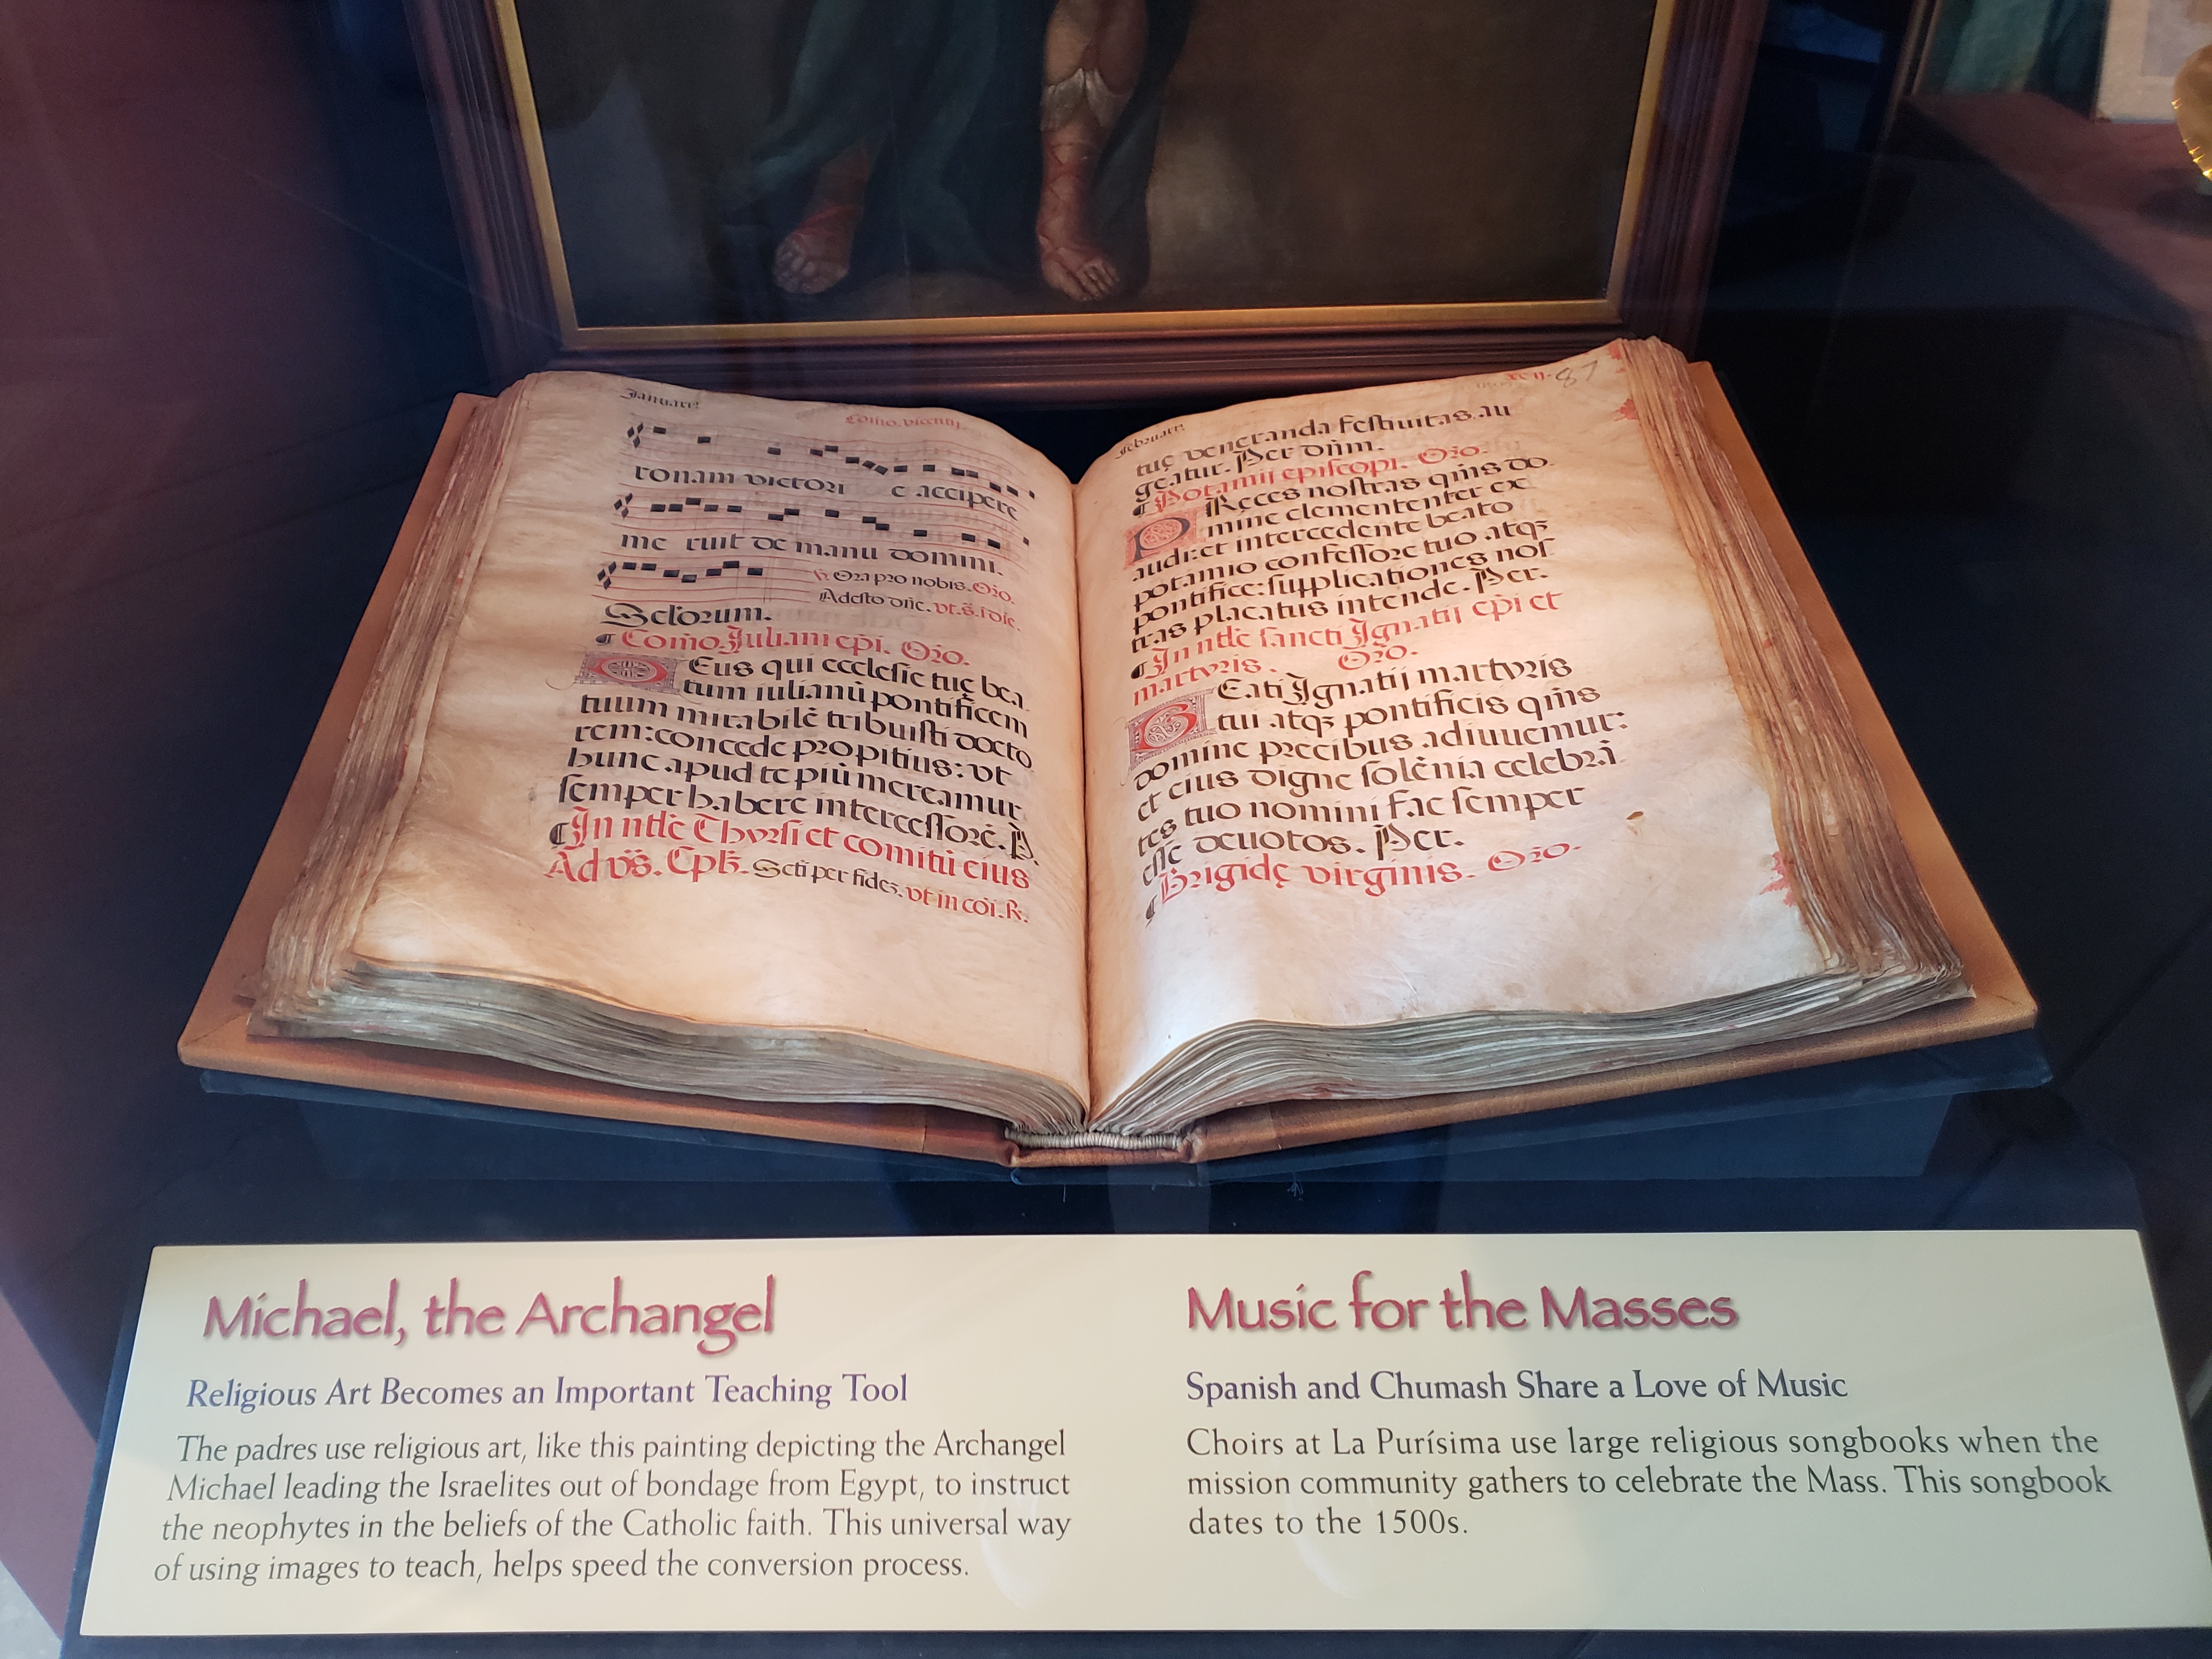 Januarij
Com̄o. vincentij.
ronam victori e accipere
me ruit de manu domini.
℣. Ora pro nobis. Or̄o.
Adesto dn̄e. vt.s̄.
Scl̄orum.
¶ Com̄o. Juliani ep̄i. Or̄o.
DEus qui ecclesie tuę bea
tum iulianū pontificem
tuum mirabilē tribuisti docto
rem: concede propitius: vt
hunc apud te piū mereamur
semper habere intercessorē. P̄.
¶ In ntl̄e Thyrsi et comitū eius
Ad vs̄. Cpl̄s. Scti per fidē. vt in cōi. ℟.
Februarij
87
tuę veneranda festiuitas au
geatur. Per dn̄m.
¶ Potamij episcopi. Or̄o.
PReces nostras qm̄s do
mine clemententer ex
audi: et intercedente beato
potamio confessore tuo atqꝫ
pontifice: supplicationes nos
tras placatus intende. Per.
¶ In ntl̄e sancti Ignatij ep̄i et
martyris. Or̄o.
BEati Ignatij martyris
tui atqꝫ pontificis qm̄s
domine precibus adiuuemur:
et eius digne solēnia celebrā
tes tuo nomini fac semper
esse deuotos. Per.
¶ Brigidę virginis. Or̄o.
Michael, the Archangel
Religious Art Becomes an Important Teaching Tool
The padres use religious art, like this painting depicting the Archangel
Michael leading the Israelites out of bondage from Egypt, to instruct
the neophytes in the beliefs of the Catholic faith. This universal way
of using images to teach, helps speed the conversion process.
Music for the Masses
Spanish and Chumash Share a Love of Music
Choirs at La Purísima use large religious songbooks when the
mission community gathers to celebrate the Mass. This songbook
dates to the 1500s.